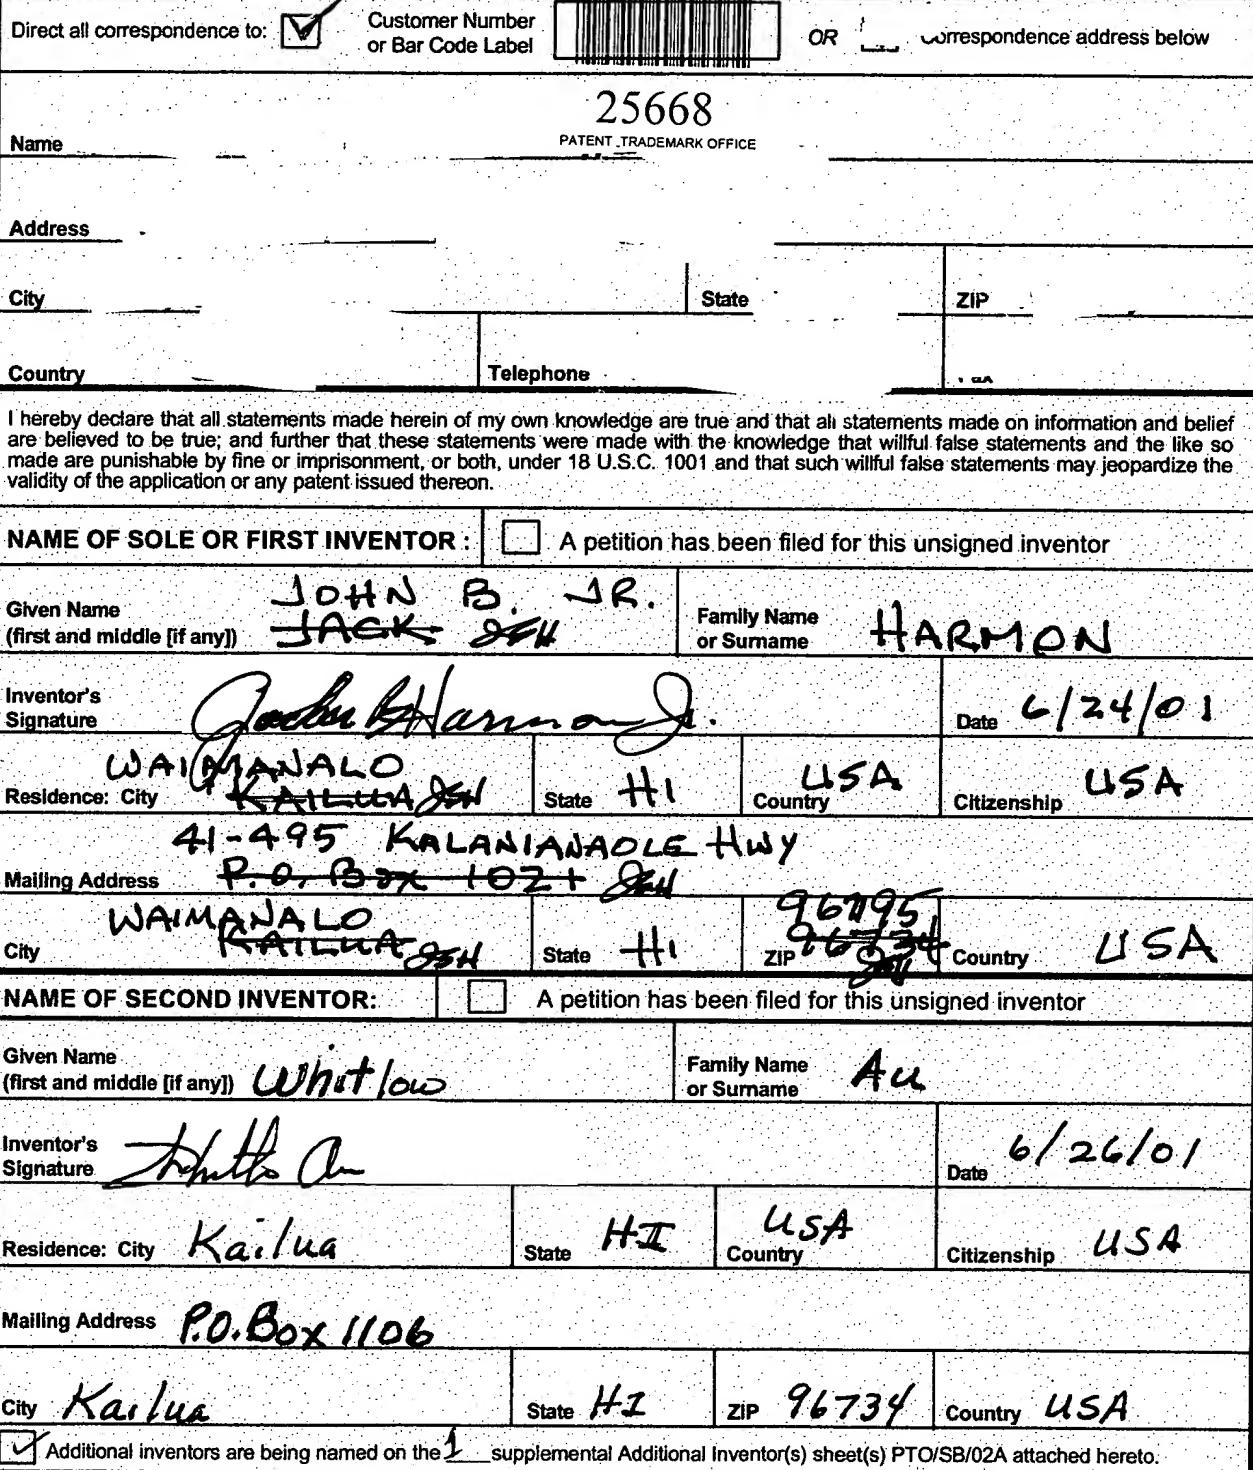 Direct all correspondence to: Customer Number or Bar Code Label OR correspondence address below
25668
PATENT TRADEMARK OFFICE
Name
Address
City State ZIP
Country Telephone
I hereby declare that all statements made herein of my own knowledge are true and that all statements made on information and belief
are believed to be true; and further that these statements were made with the knowledge that willful false statements and the like so
made are punishable by fine or imprisonment, or both, under 18 U.S.C. 1001 and that such willful false statements may jeopardize the
validity of the application or any patent issued thereon.
NAME OF SOLE OR FIRST INVENTOR : A petition has been filed for this unsigned inventor
JOHN B. JR.
Given Name
(first and middle [if any]) JACK
Family Name
or Surname HARMON
Inventor's
Signature Harmon Jr.
Date 6/24/01
WAIMANALO
Residence: City KAILUA State HI Country USA Citizenship USA
41-495 KALANIANAOLE HWY
Mailing Address P.O. Box 1021
WAIMANALO 96795
City KAILUA State HI ZIP 96734 Country USA
NAME OF SECOND INVENTOR: A petition has been filed for this unsigned inventor
Given Name
(first and middle [if any]) Whitlow
Family Name
or Surname Au
Inventor's
Signature Au
Date 6/26/01
Residence: City Kailua State HI Country USA Citizenship USA
Mailing Address P.O. Box 1106
City Kailua State HI ZIP 96734 Country USA
Additional inventors are being named on the 1 supplemental Additional Inventor(s) sheet(s) PTO/SB/02A attached hereto.